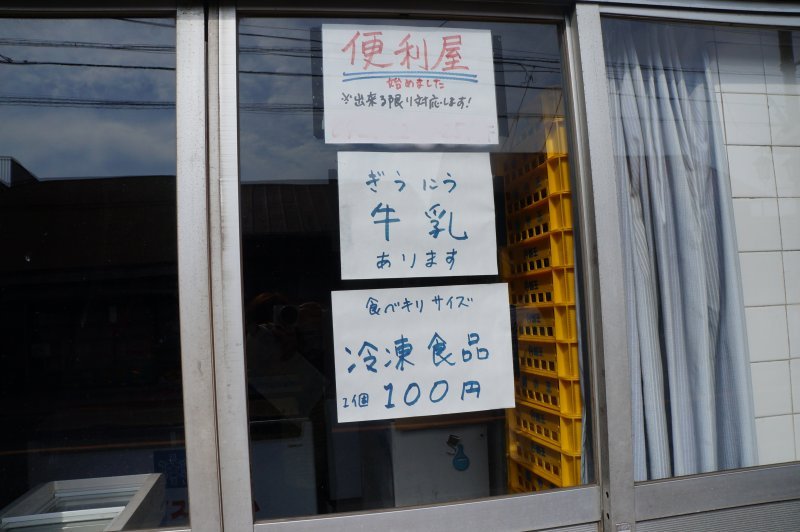 便利屋
始めました
※出来る限り対応します!
ぎうにう
牛乳
あります
食べキリサイズ
冷凍食品
1個 100円